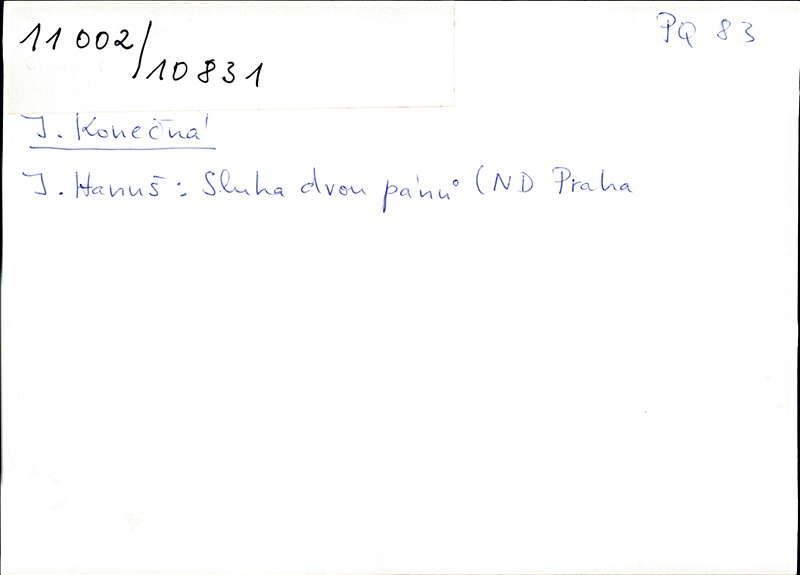 11 002/10831
PQ 83
J. Konečná
J. Hanuš: Sluha dvou pánů (ND Praha